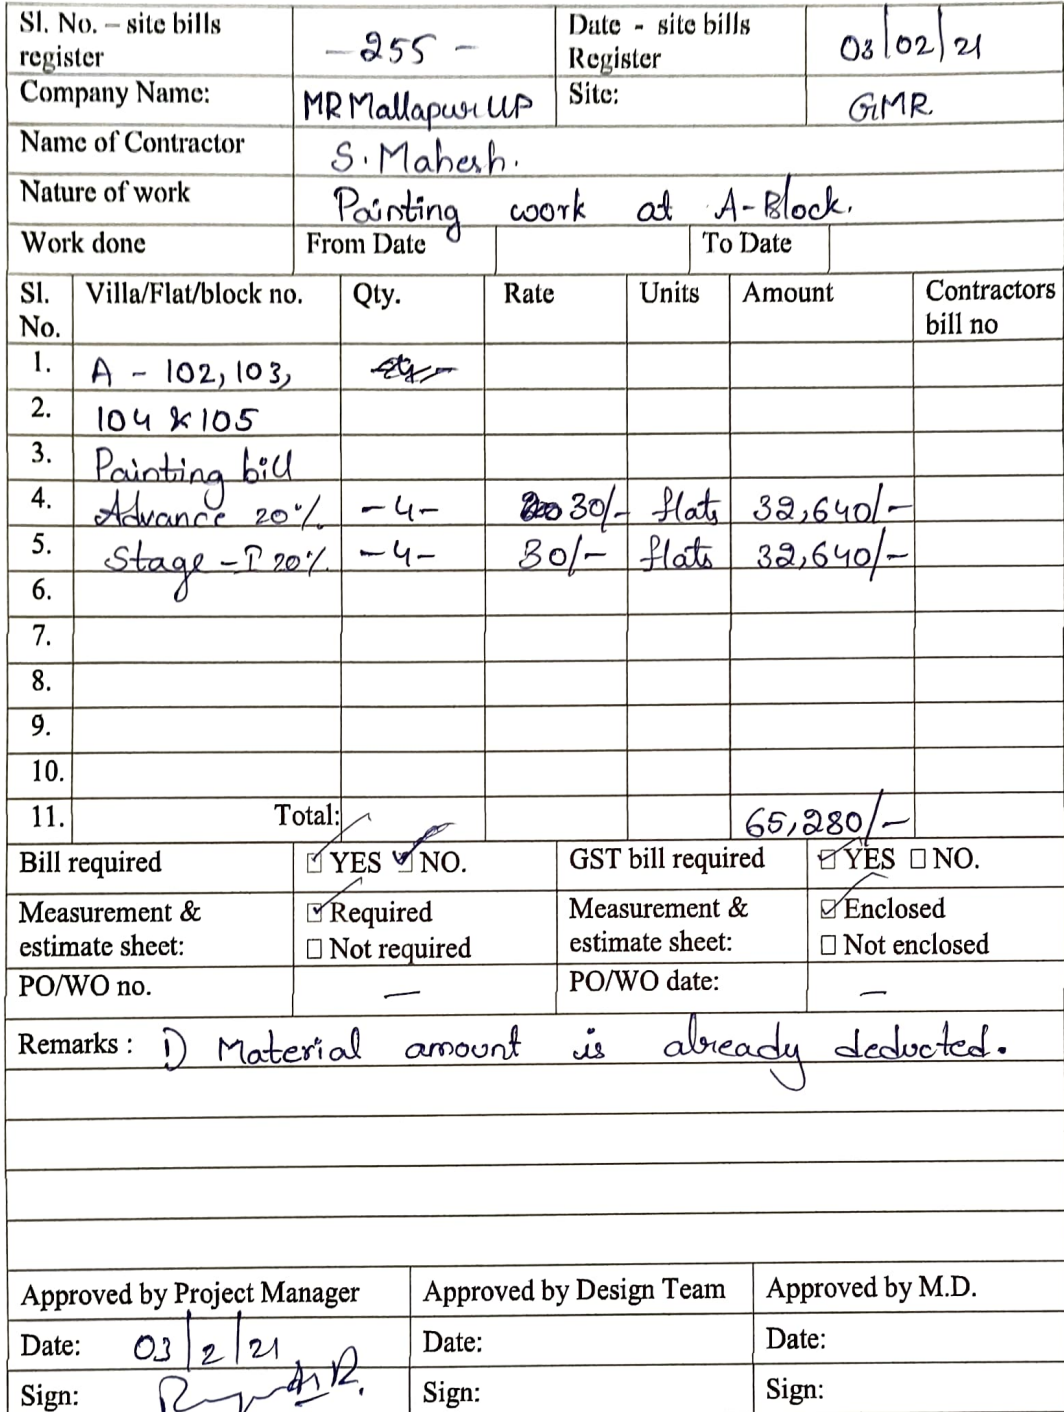 Sl. No. – site bills register -255- Date - site bills Register 03/02/21
Company Name: MR Mallapur UP Site: GMR
Name of Contractor S. Mahesh.
Nature of work Painting work at A-Block.
Work done From Date To Date
Sl. No. Villa/Flat/block no. Qty. Rate Units Amount Contractors bill no
1. A - 102, 103,
2. 104 & 105
3. Painting bill
4. Advance 20% -4- 30/- flats 32,640/-
5. Stage - I 20% -4- 30/- flats 32,640/-
6.
7.
8.
9.
10.
11. Total: 65,280/-
Bill required YES NO. GST bill required YES NO.
Measurement & estimate sheet: Required Measurement & estimate sheet: Enclosed
Not required Not enclosed
PO/WO no. — PO/WO date: —
Remarks : 1) Material amount is already deducted.
Approved by Project Manager Approved by Design Team Approved by M.D.
Date: 03/2/21 Date: Date:
Sign: Sign: Sign: